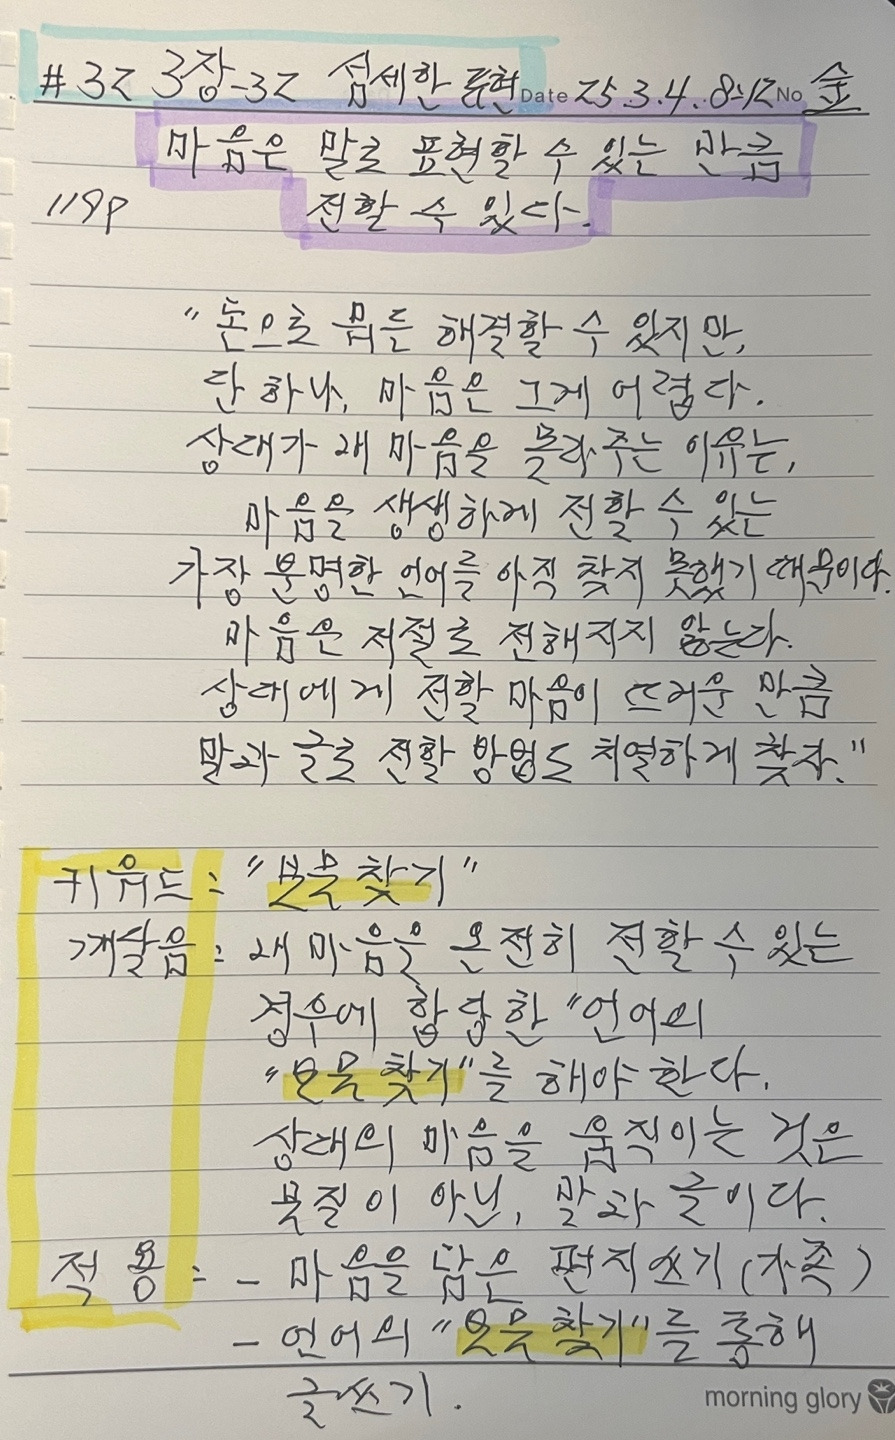 #32 3장-32 섬세한 표현 Date 25.3.4. 8:12 No 金
마음은 말로 표현할 수 있는 만큼
119P 전할 수 있다.
"돈으로 뭐든 해결할 수 있지만,
단 하나, 마음은 그게 어렵다.
상대가 내 마음을 몰라주는 이유는,
마음을 생생하게 전할 수 있는
가장 분명한 언어를 아직 찾지 못했기 때문이다.
마음은 저절로 전해지지 않는다.
상대에게 전할 마음이 뜨거운 만큼
말과 글로 전할 방법도 치열하게 찾자."
키워드 : "보물 찾기"
깨달음 : 내 마음을 온전히 전할 수 있는
경우에 합당한 "언어의
"보물 찾기"를 해야 한다.
상대의 마음을 움직이는 것은
물질이 아닌, 말과 글이다.
적용 : - 마음을 담은 편지쓰기(가족)
- 언어의 "보물 찾기"를 통해
글쓰기.
morning glory